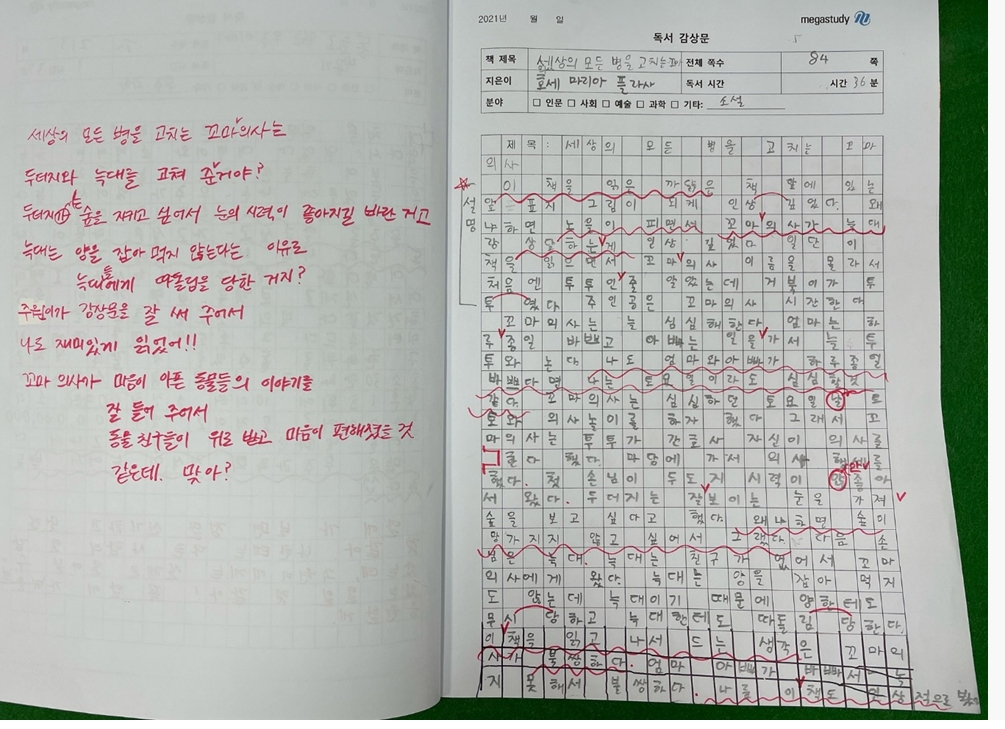 세상의 모든 병을 고치는 꼬마의사는
두더지와 늑대를 고쳐 준거야?
두더지는 숲을 지키고 싶어서 눈의 시력이 좋아지길 바란 거고
늑대는 양을 잡아 먹지 않는다는 이유로
늑대들에게 따돌림을 당한 거지?
주원이가 감상문을 잘 써 주어서
나도 재미있게 읽었어!!
꼬마 의사가 마음이 아픈 동물들의 이야기를
잘 들어 주어서
동물 친구들이 위로 받고 마음이 편해졌을 것
같은데. 맞아?
2021년 월 일
megastudy
독서 감상문
책 제목 세상의 모든 병을 고치는 꼬마 전체 쪽수 84 쪽
지은이 호세 마리아 플라사 독서 시간 시간 36 분
분야 □ 인문 □ 사회 □ 예술 □ 과학 □ 기타: 소설
제목: 세상의 모든 병을 고치는 꼬마
의사
이 책을 읽은 까닭은 책 앞에 있는
설명
앞 표지 그림이 되게 인상 깊었다. 왜
나하면 노을이 피면서 꼬마의사가 늑대
랑 상담하는게 인상 깊었다 일단 이
책을 읽으면서 꼬마의사 이름을 몰라서
처음엔 투투인줄 알았는데 거북이가 투
투 였다 주인공은 꼬마의사 시간한다
꼬마의사는 늘 심심해한다. 엄마는 하
루종일 바쁘고 아빠는 일을가서 늘 투
투와 논다. 나도 엄마와아빠가 하루종일
바쁘다면 나는 토요일이라도 심심할것
같다. 꼬마의사는 심심하던 토요일날 토
토와 의사놀이를 하자 했다 그래서 꼬
마의사는 투투가 간호사 자신이 의사를
한다 했다. 마당에 가서 의사 행세를
했다. 첫 손님이 두도지 시력이 안좋아
서 왔다. 두더지는 잘보이는 눈을 가져
숲을 보고 싶다고 했다. 왜나하면 숲이
망가지지 않고 싶어서 그랬다. 다음 손
님은 늑대. 늑대는 친구가 없어서 꼬마
의사에게 왔다. 늑대는 양을 잡아 먹지
도 않는데 늑대이기 때문에 양한테도
무시 당하고 늑대한테도 따돌림 당한다.
이 책을 읽고 나서 드는 생각은 꼬마의
사가 불쌍하다. 엄마 아빠가 바빠서 놀
지 못해서 불쌍하다. 나를 이책도 인상 적으로 봤